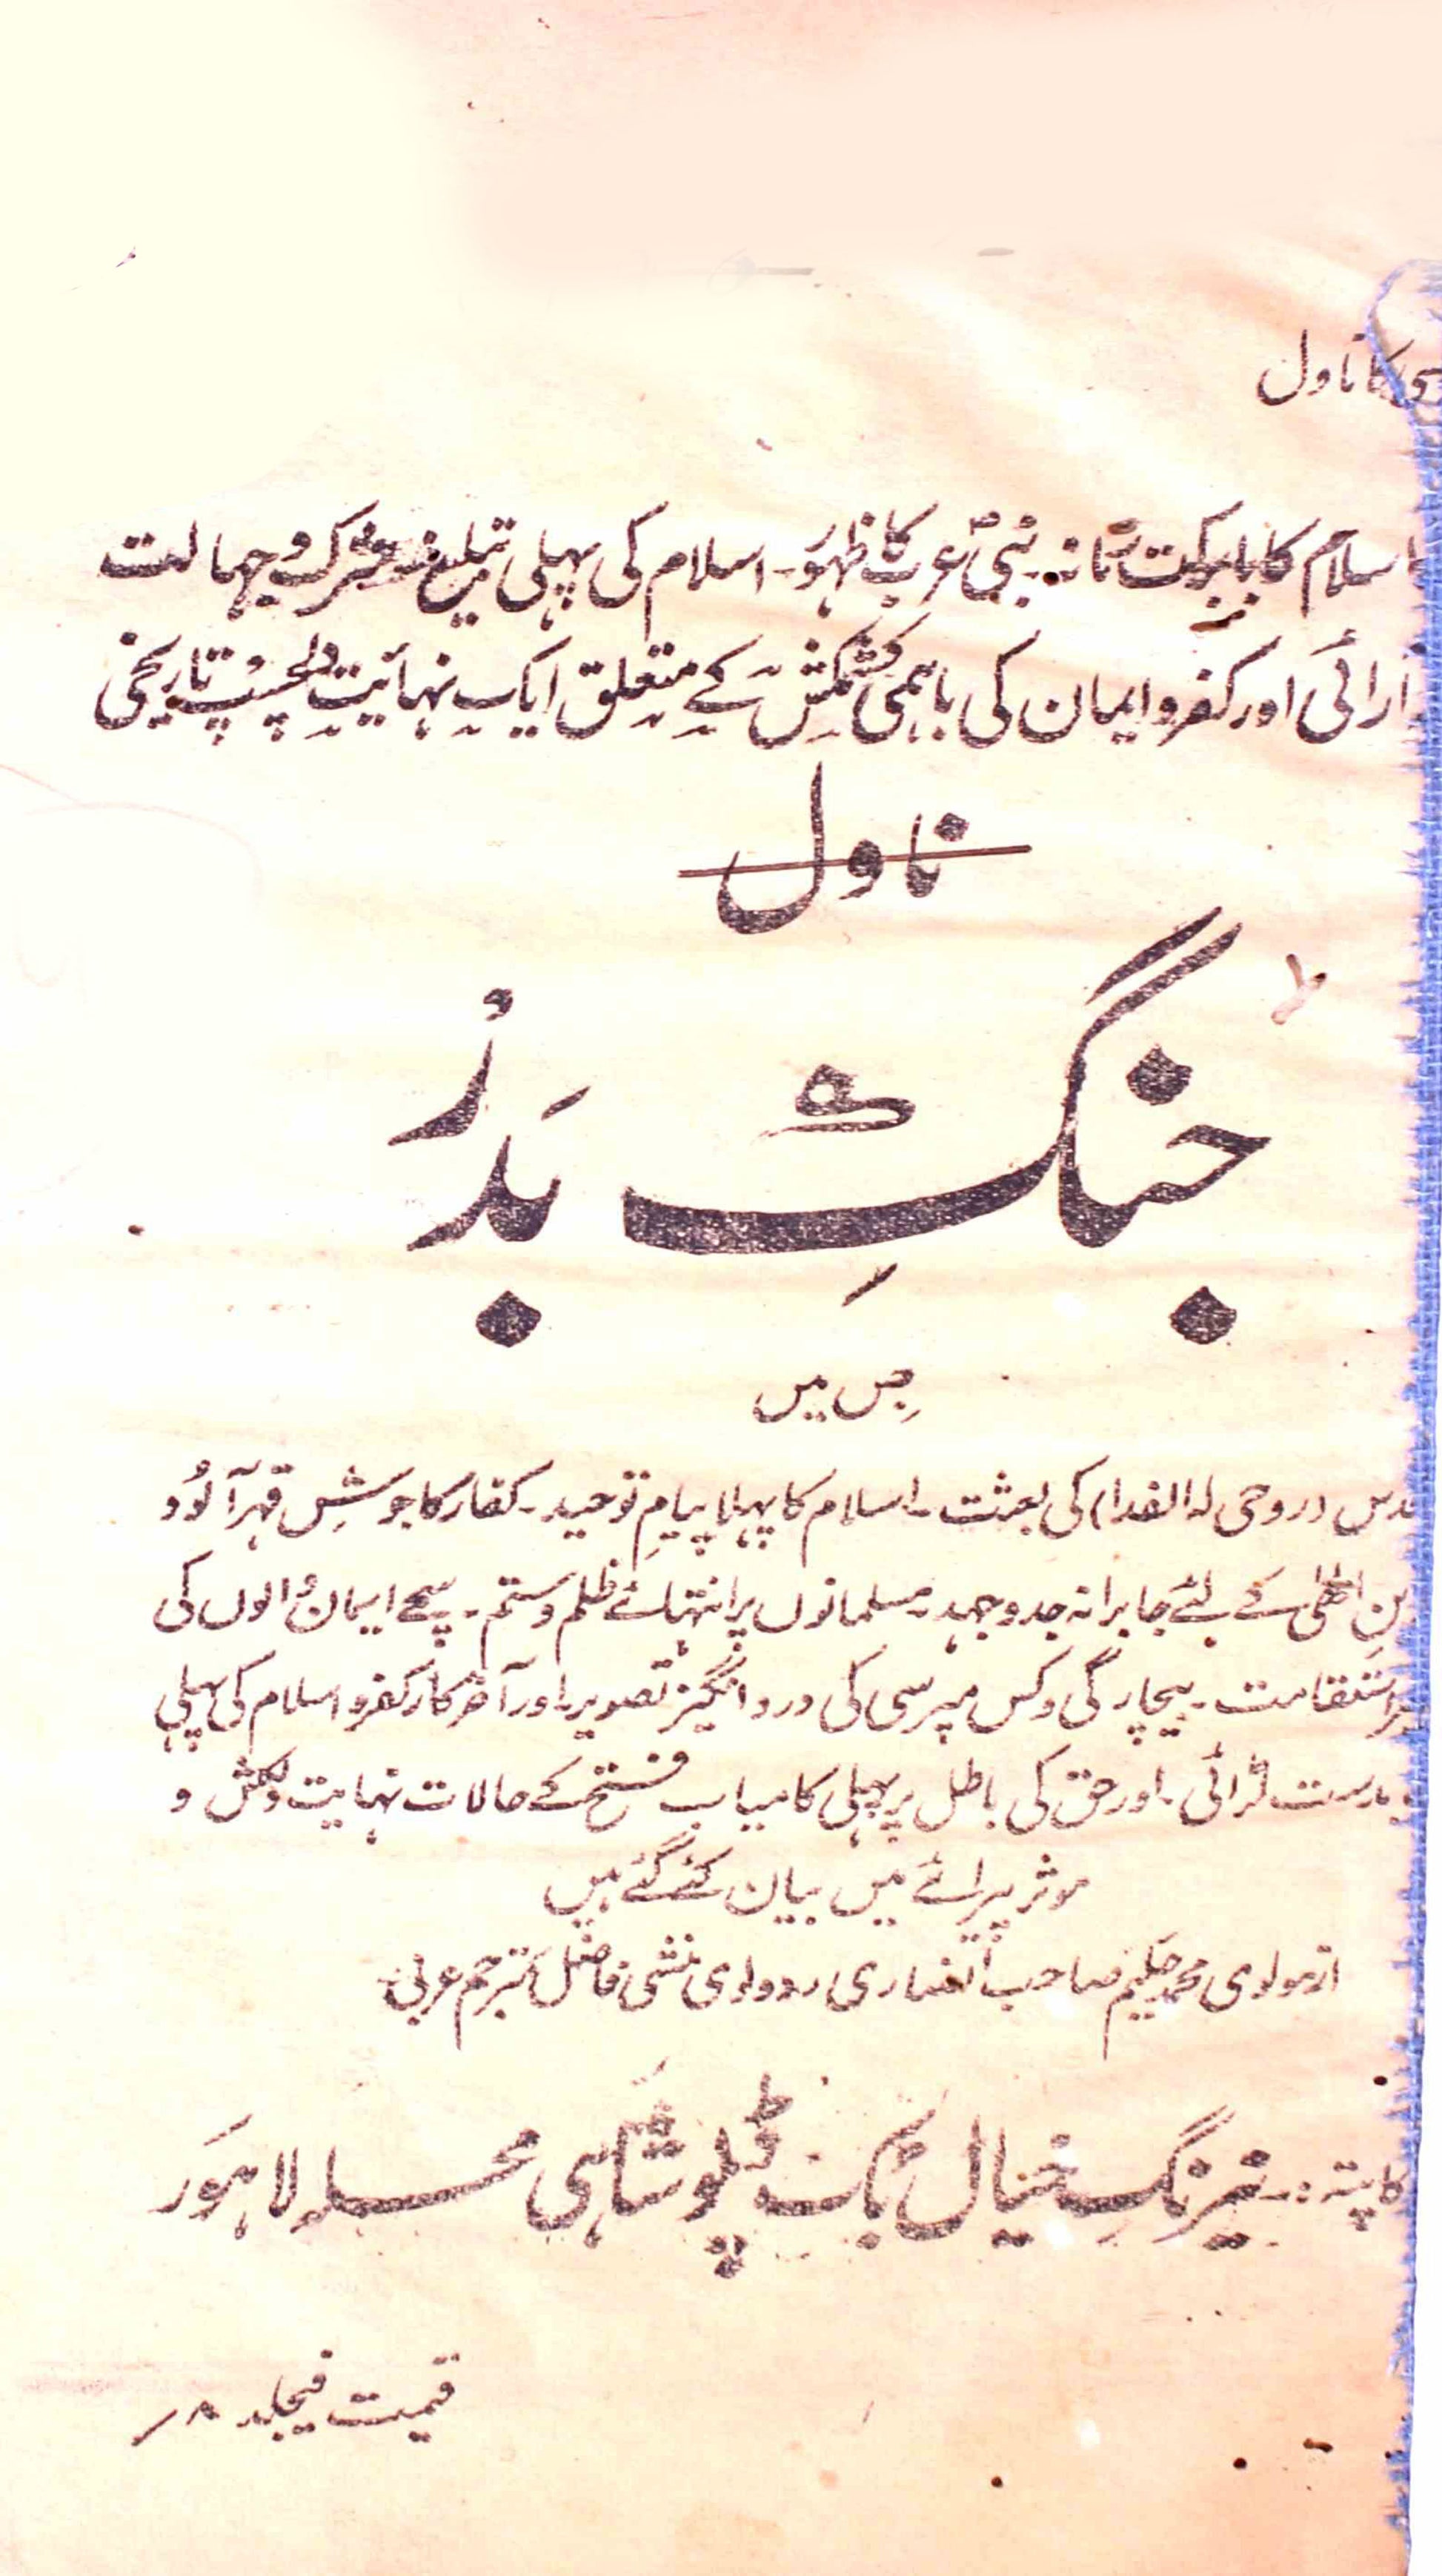 کا ناول
اسلام کا بابرکت زمانہ۔ نبیٔ عرب کا ظہور۔ اسلام کی پہلی تبلیغ شرک و جہالت
آرائی اور کفر و ایمان کی باہمی کشمکش کے متعلق ایک نہائیت دلچسپ تاریخی
ناول
جنگِ بَدرْ
جِس میں
روحی لہ الفدا) کی بعثت۔ اسلام کا پہلا پیامِ توحید۔ کفار کا جوشِ قہر آلُود
کے لئے جابرانہ جدوجہد۔ مسلمانوں پر انتہائے ظلم و ستم۔ سچے ایمان والوں کی
استقامت۔ بیچارگی و کس مپرسی کی درد انگیز تصویر۔ اور آخر کار کفر و اسلام کی پہلی
لڑائی۔ اور حق کی باطل پر پہلی کامیاب فتح کے حالات نہایت دلکش و
موثر پیرائے میں بیان کئے گئے ہیں
از مولوی محمد حلیم صاحب انصاری ردولوی منشی فاضل مترجم عربی
کا پتہ:۔ نیرنگِ خیال بک ڈپو شاہی محلہ لاہور
قیمت فیجلد ۸؍